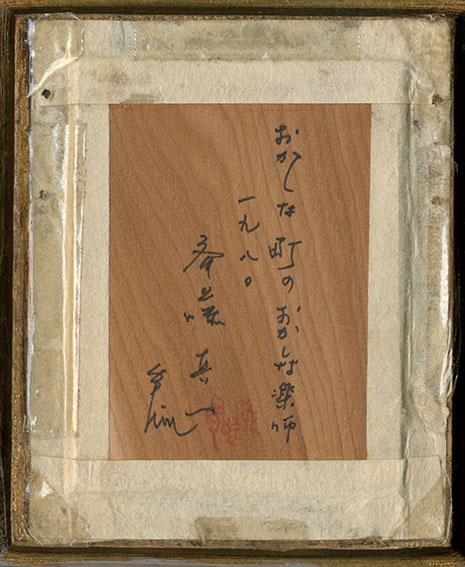 おかしな町のおかしな楽師
一九八〇
斎藤真一
Shin